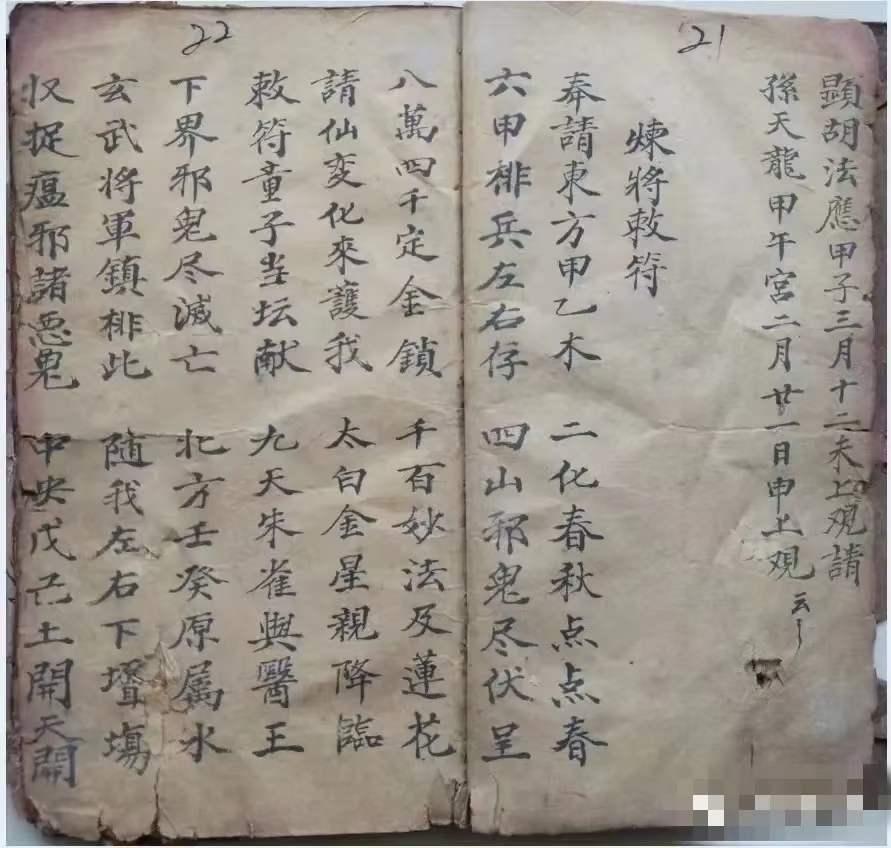 21
顕胡法應甲子三月十二未上观請
孫天龍甲午宮二月廿一日申上观云云
煉將敕符
奉請東方甲乙木 二化春秋点点春
六甲排兵左右存 四山邪鬼尽伏呈
22
八萬四千定金鎖 千百妙法及蓮花
請仙变化來護我 太白金星親降臨
敕符童子当坛献 九天朱雀與醫王
下界邪鬼尽滅亡 北方壬癸原属水
玄武将軍鎮排此 隨我左右下壇塲
收捉瘟邪諸恶鬼 中央戊己土開天開